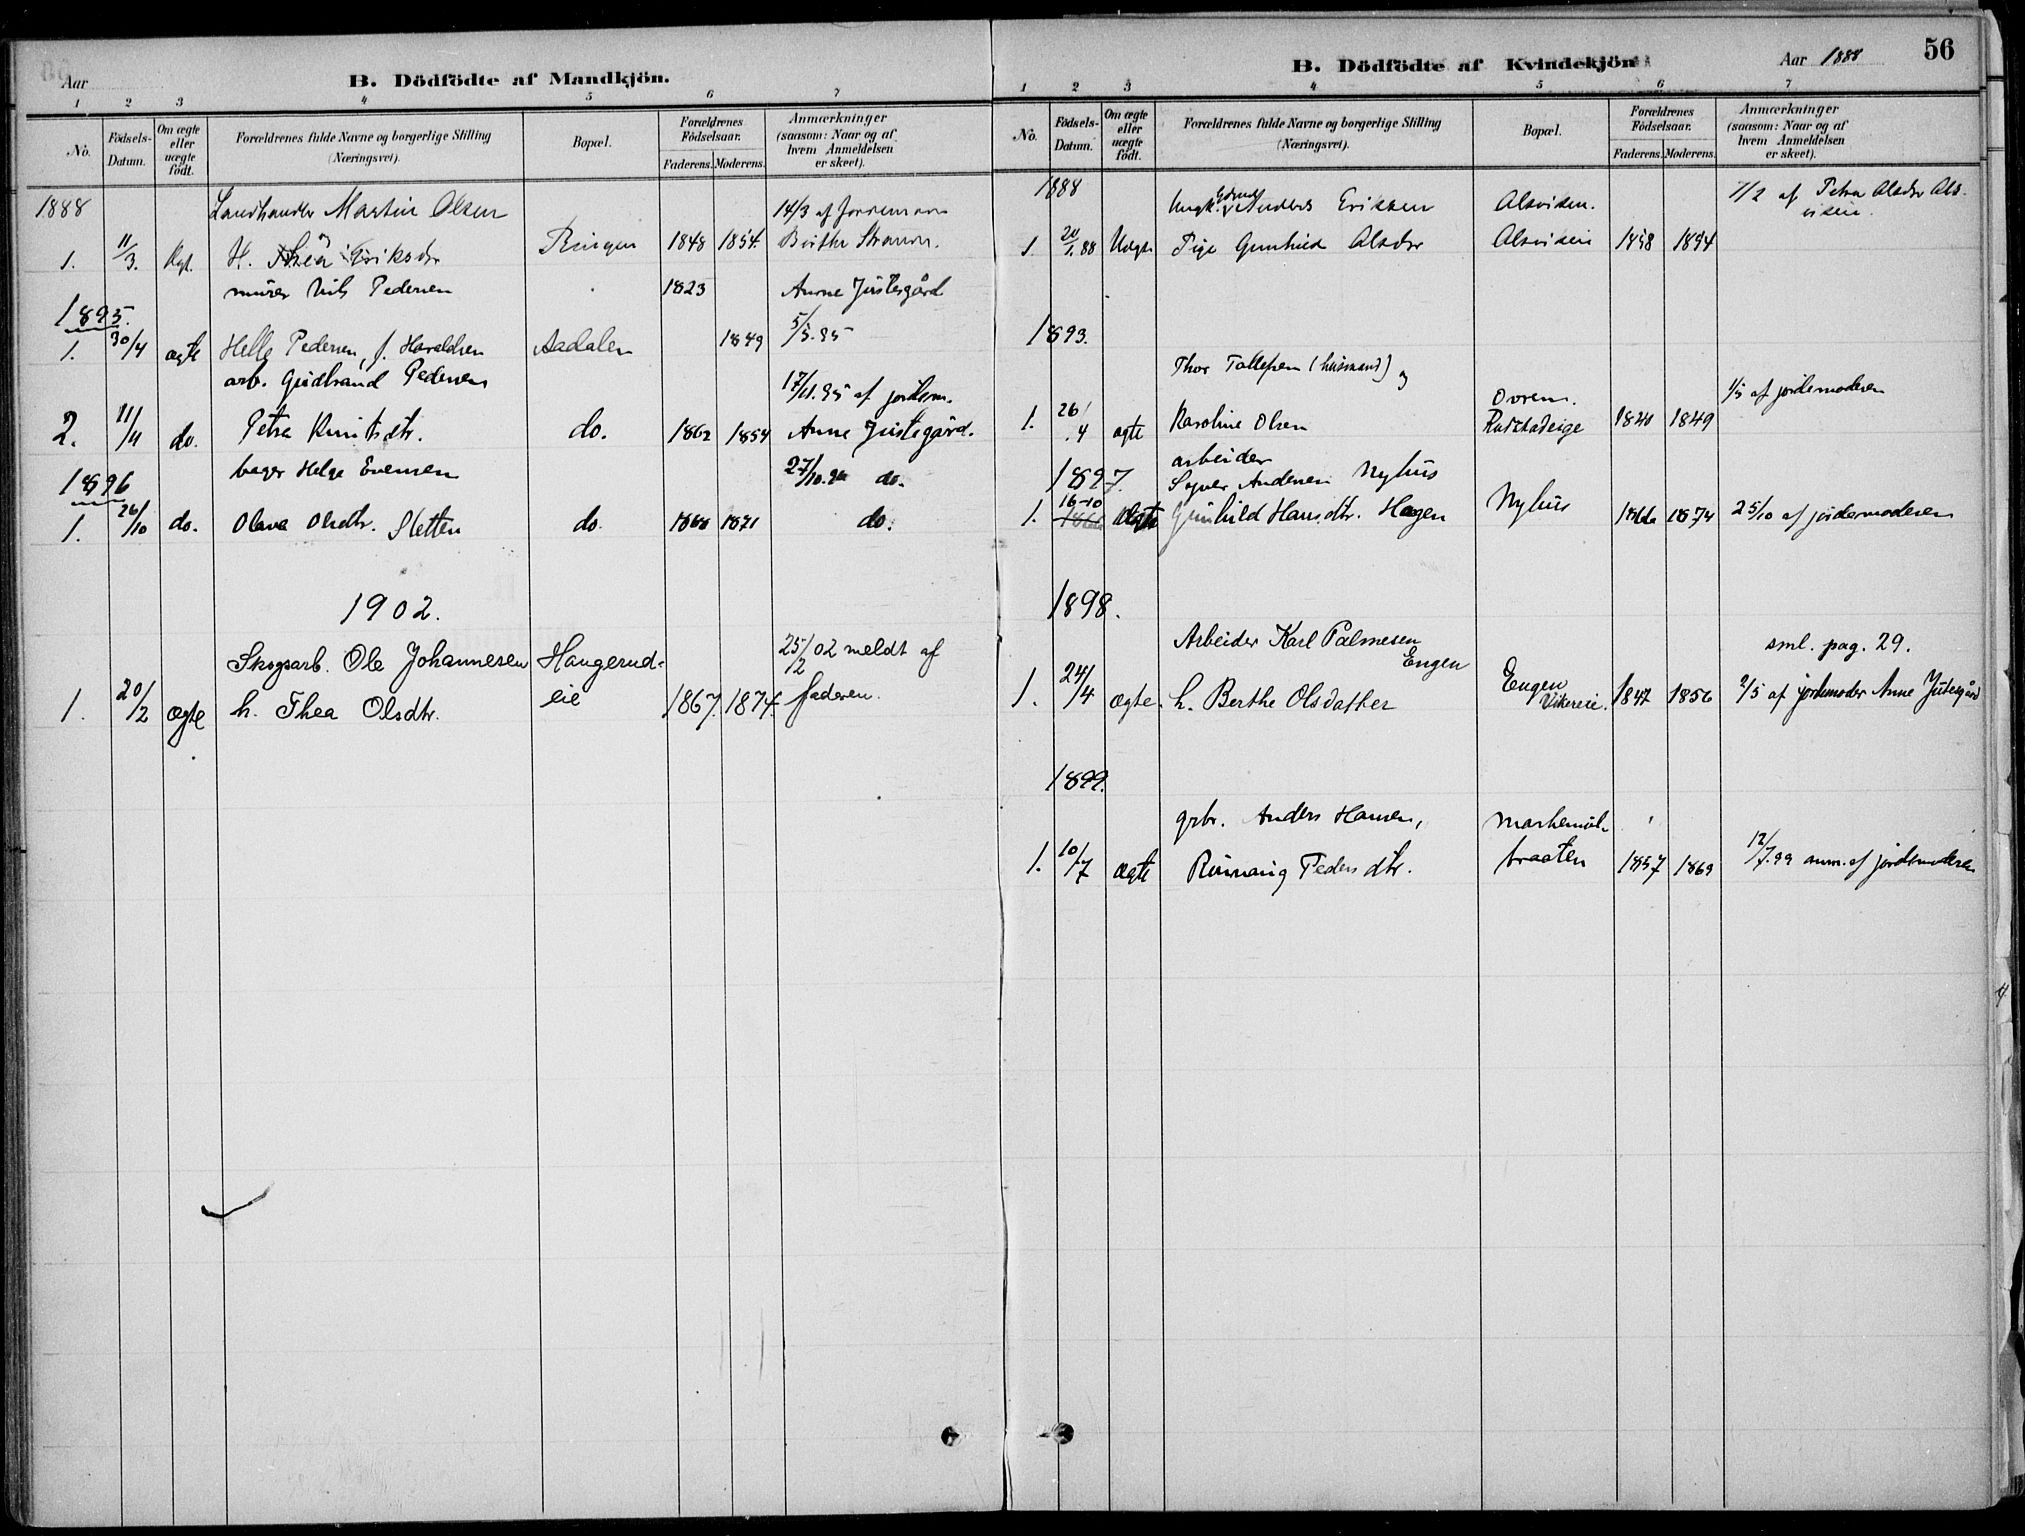 Aar
B. Dödfödte af Mandkjön.
1 2 3 4 5 6 7
No.
Födsels-Datum.
Om ægte eller uægte födt.
Forældrenes fulde Navne og borgerlige Stilling
(Næringsvei).
Bopæl.
Forældrenes Födselsaar.
Faderens. Moderens.
Anmærkninger
(saasom: Naar og af
hvem Anmeldelsen
er skeet).
1888 Landhandler Martin Olsen 14/3 af Jordemoder
1. 11/3. Ægt. H. Thea Eriksdr Ringen 1848 1854 Birthe
murer Nils Pedersen 1823 Anne Justesgård
1895.
1. 30/4 ægte Helle Pedersen, f. Haraldsen Aadalen 1849 5/5.95
arb. Gudbrand Pedersen 17/11.95 af jordem.
2. 11/11 do. Petra Knutsdtr. do. 1862 1854 Anne Justegård.
1896 bager Helge Evensen 27/10.96 do.
1. 26/10 do. Olava Olsdtr. Sletten do. 1868 1871 do.
1902.
Skogsarb. Ole Johannesen Haugerud- 25/2 02 meldt af
1. 20/2 ægte h. Thea Olsdtr. eie 1867. 1874. faderen.
B. Dödfödte af Kvindekjön
Aar 1888
56
1 2 3 4 5 6 7
No.
Födsels-Datum.
Om ægte eller uægte födt.
Forældrenes fulde Navne og borgerlige Stilling
(Næringsvei).
Bopæl.
Forældrenes Födselsaar.
Faderens. Moderens.
Anmærkninger
(saasom: Naar og af
hvem Anmeldelsen
er skeet).
1888 Ungk. Anders Eriksen Alsviken. 7/2 af Petra Olsdr Als-
viken.
1. 20/1.88 Uægte Pige Gunhild Olsdr Alsviken 1858 1854
1893.
Thor Tollefsen (husmand) og
1. 26/4 ægte Karoline Olsen Rudstadeige 1840 1849 1/5 af jordemoderen
1897. arbeider
Syver Andersen Nyhus
1. 16-10 ægte Gunhild Hansdtr. Hagen Nyhus 1866 1874 25/10 af jordemoderen
1898.
Arbeider Karl Palmesen
Engen sml. pag. 29.
1. 24/4 ægte. h. Berthe Olsdatter Engen Vikereie. 1847 1856 2/5 af jordemoder Anne Justegård
1899.
grbr. Anders Hansen,
1. 10/7 ægte Rønnaug Pedersdtr. braaten 1857 1869 12/7.99 anm. af jordemoderen